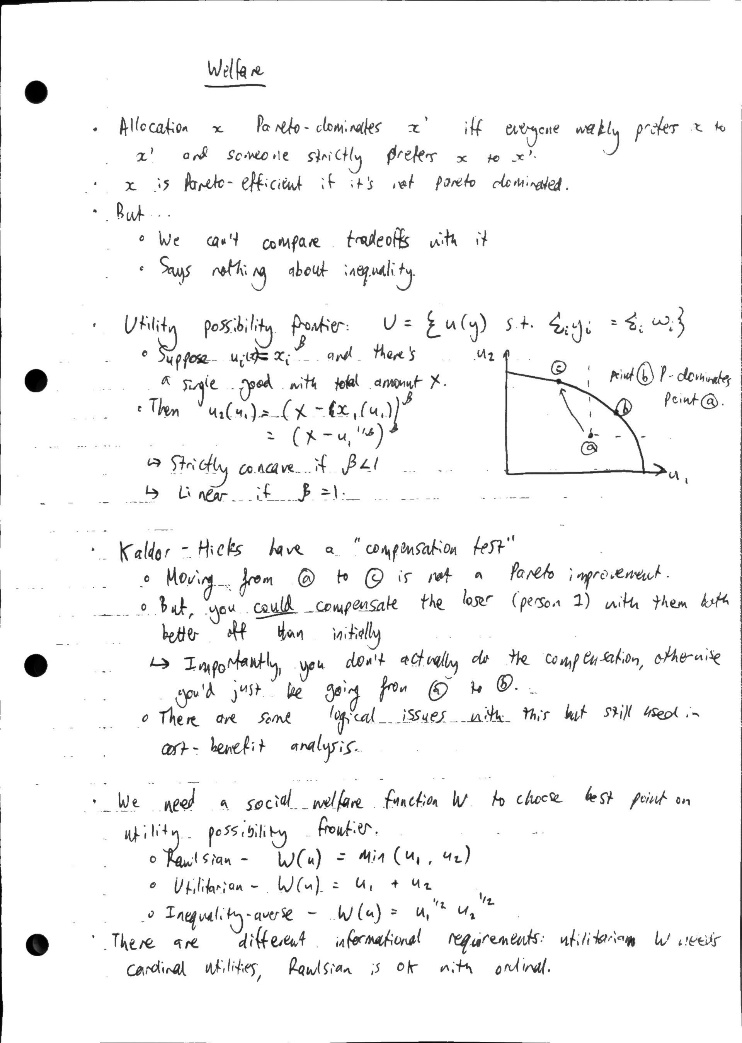 Welfare
· Allocation x Pareto-dominates x' iff everyone weakly prefers x to
x' and someone strictly prefers x to x'.
· x is Pareto-efficient if it's not pareto dominated.
· But...
∘ We can't compare tradeoffs with it
∘ Says nothing about inequality.
· Utility possibility frontier: U = {u(y) s.t. Σᵢyᵢ = Σᵢ ωᵢ}
∘ Suppose uᵢ(x) = xᵢ^β and there's
a single good with total amount X.
∘ Then u₂(u₁) = (X - (x₁(u₁))^β
= (X - u₁^(1/β))^β
↳ Strictly concave if β<1
↳ Linear if β=1.
u₂
ⓒ
ⓑ
ⓐ
u₁
Point ⓑ P-dominates
Point ⓐ.
· Kaldor-Hicks have a "compensation test"
∘ Moving from ⓐ to ⓒ is not a Pareto improvement.
∘ But, you could compensate the loser (person 1) with them both
better off than initially
↳ Importantly, you don't actually do the compensation, otherwise
you'd just be going from ⓐ to ⓑ.
∘ There are some logical issues with this but still used in
cost-benefit analysis.
· We need a social welfare function W to choose best point on
utility possibility frontier.
∘ Rawlsian - W(u) = min(u₁, u₂)
∘ Utilitarian - W(u) = u₁ + u₂
∘ Inequality-averse - W(u) = u₁^1/2 u₂^1/2
· There are different informational requirements: utilitarian W needs
cardinal utilities, Rawlsian is ok with ordinal.